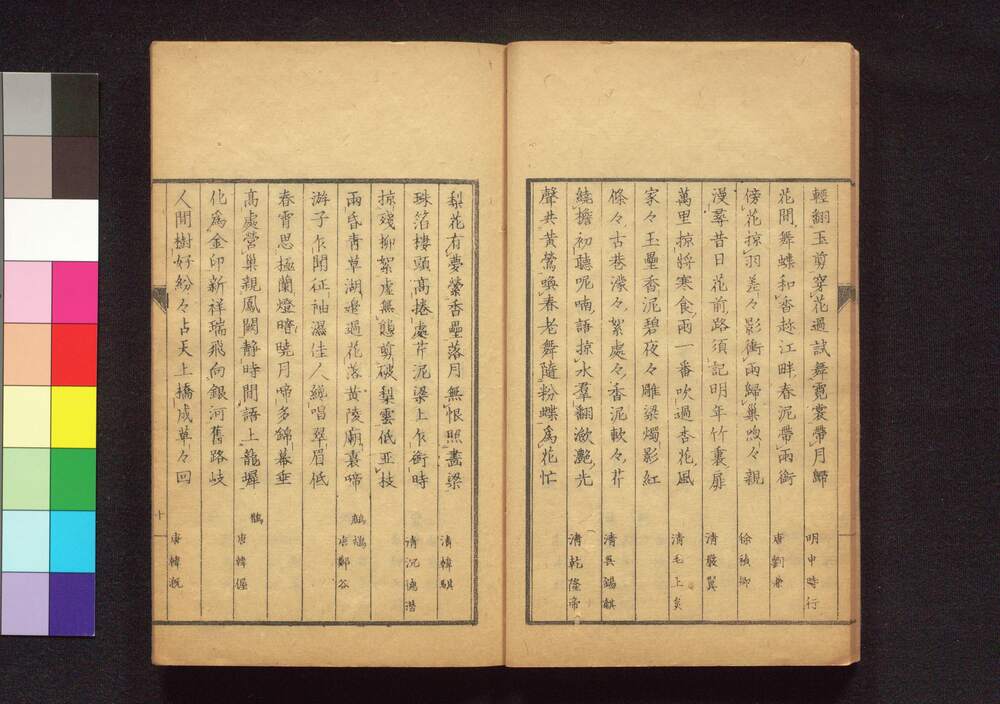 輕翻玉剪穿花過試舞霓裳帶月歸　明申時行
花間舞蝶和香趂江畔春泥帶雨銜　唐劉兼
傍花掠羽差々影衝雨歸巢哅々親　徐禎卿
漫尋昔日花前路須記明年竹裏扉　清嚴翼
萬里掠將寒食雨一番吹過杏花風　清毛上炱
家々玉壘香泥碧夜々雕梁燭影紅
條々古巷濛々絮處々香泥軟々芹　清吳錫麒
繞檐初聽呢喃語掠水羣翻瀲灧光　清乾隆帝
聲共黃鶯喚春老舞隨粉蝶為花忙
梨花有夢縈香壘落月無恨照畫梁　清韓騏
珠箔樓頭高捲處芹泥梁上乍銜時　清沉德潛
掠殘柳絮虛無態剪破梨雲低亚技
鷓鴣
雨昏青草湖邊過花落黃陵廟裏啼　唐鄭谷
游子乍聞征袖濕佳人纔唱翠眉低
春宵思極蘭燈暗曉月啼多錦幕垂
鵲
高處營巢親鳳闕静時間語上龍墀　唐韓偓
化為金印新祥瑞飛向銀河舊路岐
人間樹好紛々占天上橋成草々回　唐韓溉
十